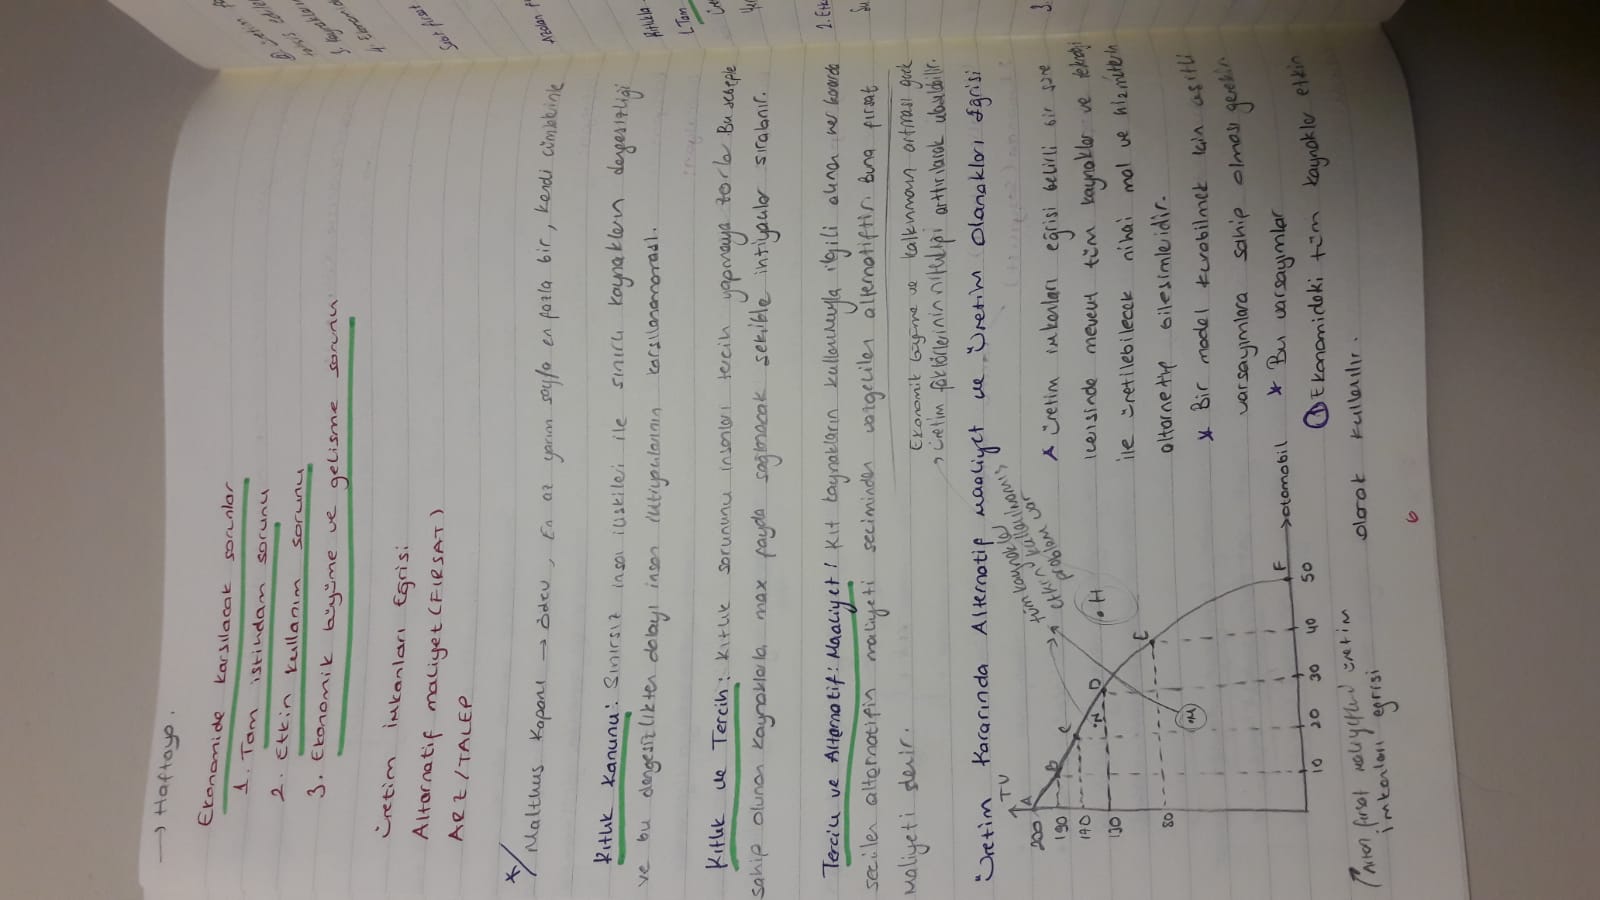 → Haftaya.
Ekonomide karşılacak sorunlar
1. Tam istihdam sorunu
2. Etkin kullanım sorunu
3. Ekonomik büyüme ve gelişme sorunu
üretim imkanları Eğrisi
Alternatif maliyet (FIRSAT)
ARZ / TALEP
*/ Malthus Kapanı → ödev, En az yarım sayfa en fazla bir, kendi cümlelerinle
Kıtlık Kanunu: Sınırsız insan ilişkileri ile sınırlı kaynakların dengesizliği
ve bu dengesizlikten dolayı insan ihtiyaçlarının karşılanamaması.
Kıtlık ve Tercih: Kıtlık sorununu insanları tercih yapmaya zorlar Bu sebeple
sahip olunan kaynaklarla max fayda sağlanacak şekilde ihtiyaçlar sıralanır.
Tercih ve Alternatif Maaliyet: Kıt kaynakların kullanımıyla ilgili alınan her kararda
seçilen alternatifin maliyeti seçiminden vazgeçilen alternatiftir. Buna fırsat
maliyeti denir.
Ekonomik büyüme ve kalkınmanın artması
→ üretim faktörlerinin niteliği arttırılarak ulaşılabilir.
Üretim Kararında Alternatif Maaliyet ve Üretim Olanakları Eğrisi
tüm kaynaklar kullanılmamış
→ etkin kullanım
problem var
TV
200 A
190 B
170 C
130 D
80 E
.N
.M
.H
10 20 30 40 50 F → otomobil
↑ Artan fırsat maliyetleri üretim
imkanları eğrisi
* Üretim imkanları eğrisi belirli bir süre
içerisinde mevcut tüm kaynaklar ve teknoloji
ile üretilebilecek nihai mal ve hizmetlerin
altarnetif bileşimleridir.
* Bir model kurabilmek için çeşitli
varsayımlara sahip olması gerekir
* Bu varsayımlar
① Ekonomideki tüm kaynaklar etkin
olarak kullanılır.
6